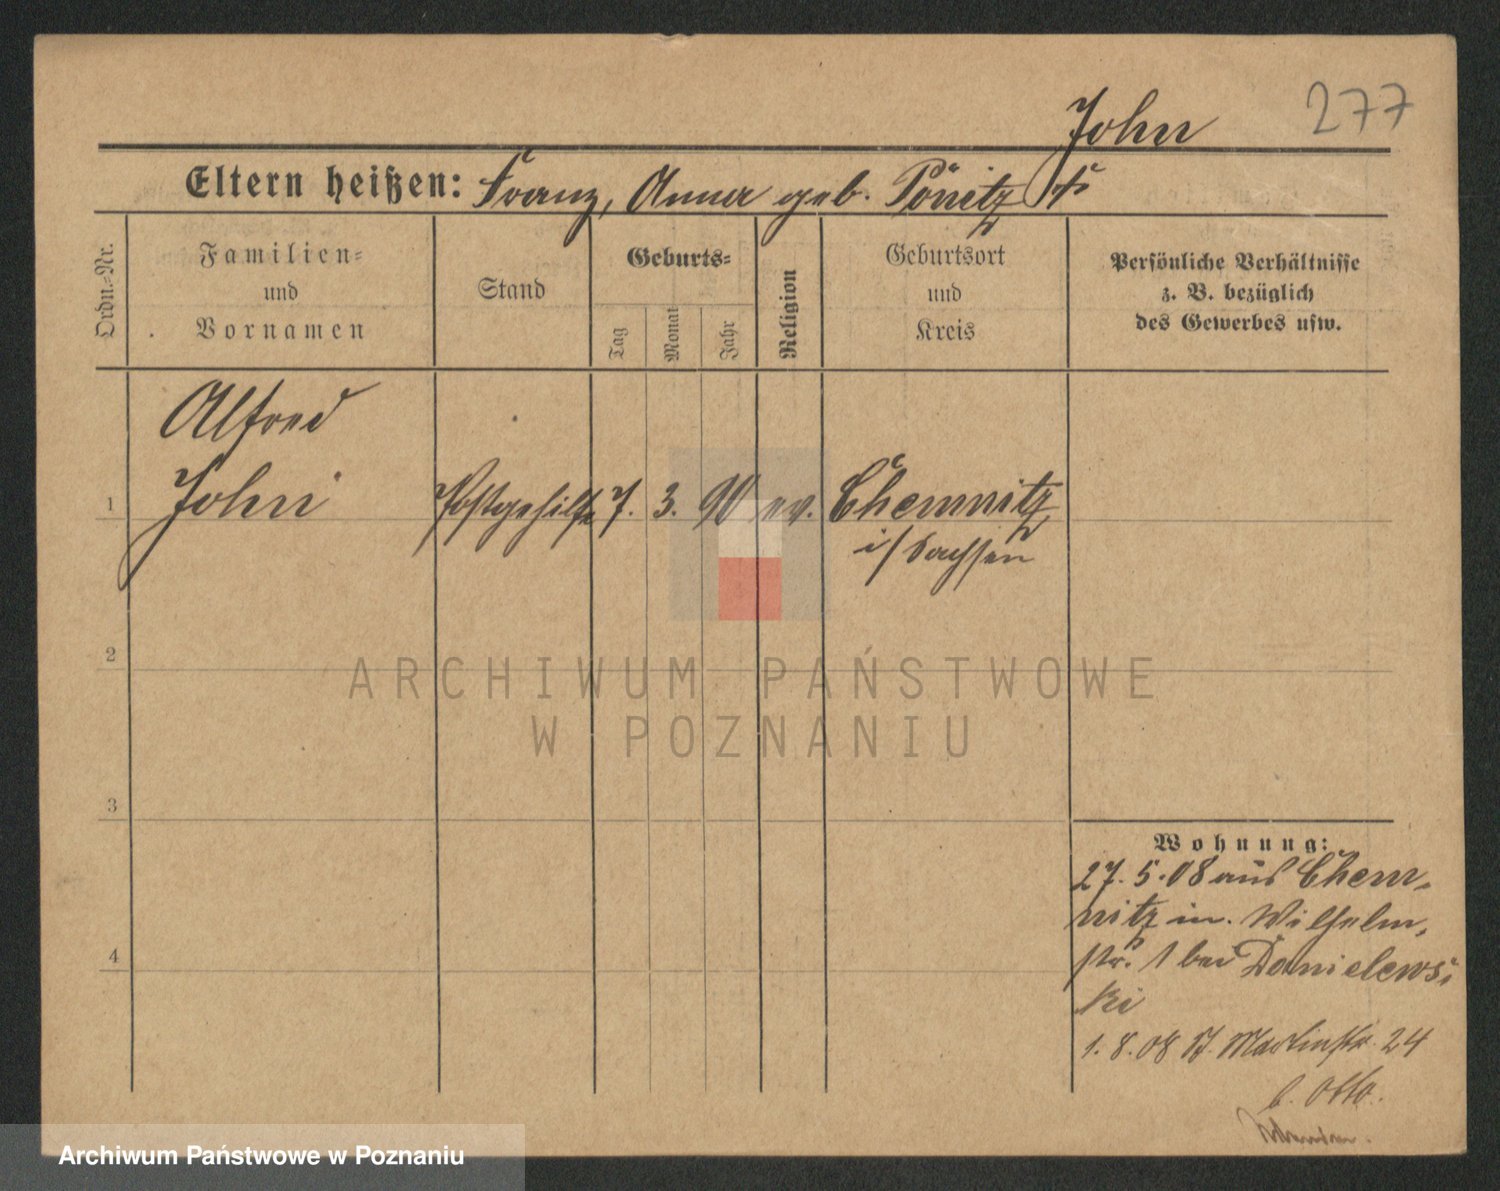 277
John
Eltern heißen: Franz, Anna geb. Pönitz
Ordn.-Nr.
Familien-
und
Vornamen
Stand
Geburts-
Tag
Monat
Jahr
Religion
Geburtsort
und
Kreis
Persönliche Verhältnisse
z. B. bezüglich
des Gewerbes usw.
Alfred
1 John Postgehilfe 7. 3. 90 ev. Chemnitz
i/Sachsen
2
ARCHIWUM PAŃSTWOWE
W POZNANIU
3
Wohnung:
27.5.08 aus Chem-
nitz in. Wilhelm-
str. 1 bei Danielews-
ki
4
1.8.08 St. Martinstr. 24
b. Otto.
Archiwum Państwowe w Poznaniu